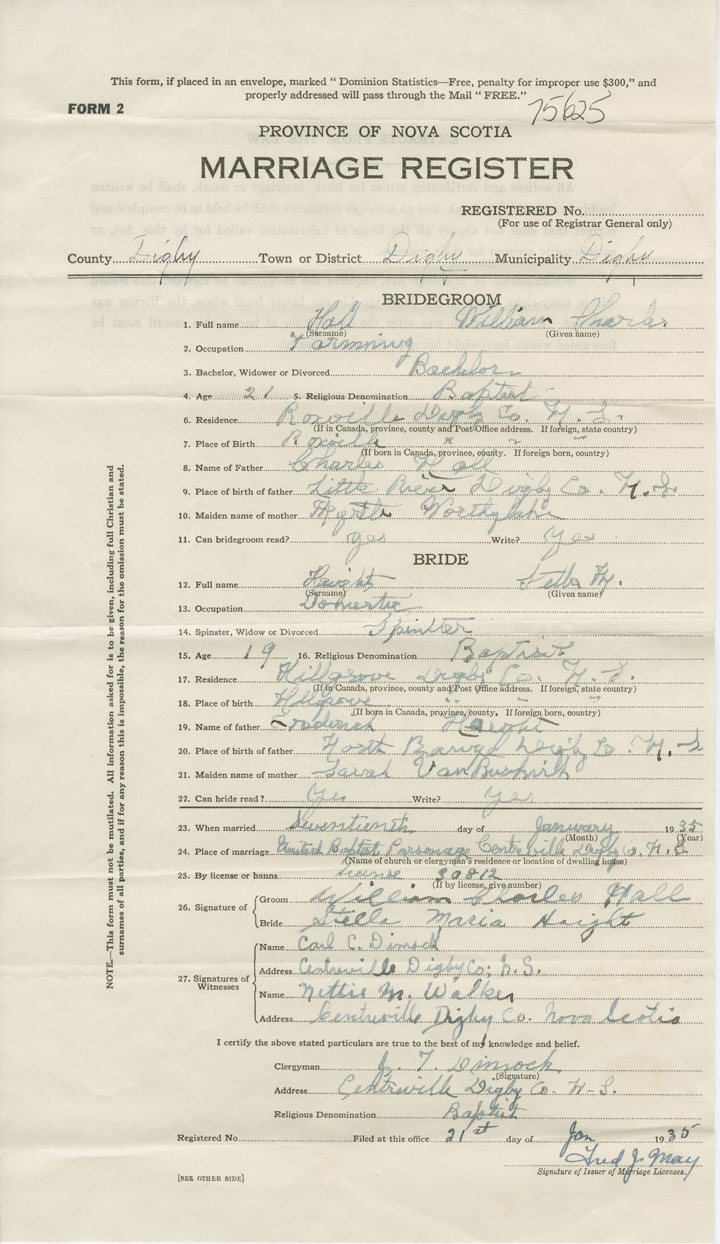 This form, if placed in an envelope, marked " Dominion Statistics—Free, penalty for improper use $300," and
properly addressed will pass through the Mail " FREE."
FORM 2
75625
PROVINCE OF NOVA SCOTIA
MARRIAGE REGISTER
REGISTERED No.
(For use of Registrar General only)
County Digby Town or District Digby Municipality Digby
BRIDEGROOM
1. Full name Hall William Charles
(Surname) (Given name)
2. Occupation Farming
3. Bachelor, Widower or Divorced Bachelor
4. Age 21 5. Religious Denomination Baptist
6. Residence Roxville Digby Co. N. S.
(If in Canada, province, county and Post Office address. If foreign, state country)
7. Place of Birth Roxville " " "
(If born in Canada, province, county. If foreign born, country)
8. Name of Father Charles Hall
9. Place of birth of father Little River Digby Co. N. S.
10. Maiden name of mother Myrtle Worthylake
11. Can bridegroom read? yes Write? Yes
BRIDE
12. Full name Haight Stella M.
(Surname) (Given name)
13. Occupation Domestic
14. Spinster, Widow or Divorced Spinster
15. Age 19 16. Religious Denomination Baptist
17. Residence Hillgrove Digby Co. N. S.
(If in Canada, province, county and Post Office address. If foreign, state country)
18. Place of birth Hillgrove " " "
(If born in Canada, province, county. If foreign born, country)
19. Name of father Frederick Haight
20. Place of birth of father North Range Digby Co. N. S
21. Maiden name of mother Sarah VanBuskirk
22. Can bride read? Yes Write? Yes
23. When married Seventienth day of January 1935
(Month) (Year)
24. Place of marriage United Baptist Parsonage Centreville Digby Co. N. S.
(Name of church or clergyman's residence or location of dwelling house)
25. By license or banns license 30812
(If by license, give number)
26. Signature of
Groom William Charles Hall
Bride Stella Maria Haight
27. Signatures of Witnesses
Name Carl C. Dimock
Address Centreville Digby Co; N. S.
Name Nettie M. Walker
Address Centreville Digby Co. Nova Scotia
I certify the above stated particulars are true to the best of my knowledge and belief.
Clergyman J. T. Dimock
(Signature)
Address Centreville Digby Co. N. S.
Religious Denomination Baptist
Registered No. Filed at this office 21st day of Jan 1935
Fred J. May
Signature of Issuer of Marriage Licenses.
[SEE OTHER SIDE]
NOTE.—This form must not be mutilated. All information asked for is to be given, including full Christian and
surnames of all parties, and if for any reason this is impossible, the reason for the omission must be stated.